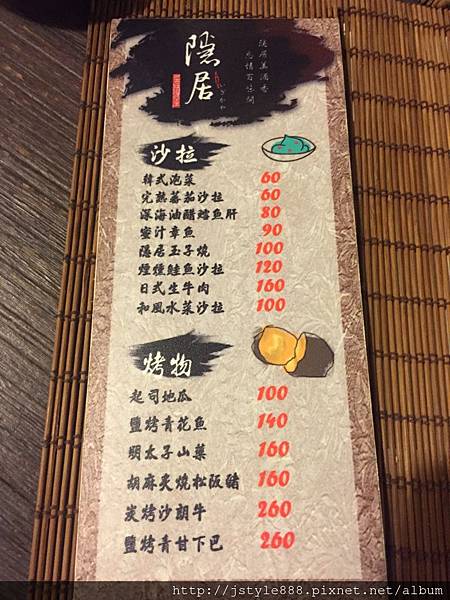 隱居
隱居美酒香
忘情百味間
沙拉
韓式泡菜 60
完熟蕃茄沙拉 60
深海油醋鱈魚肝 80
蜜汁章魚 90
隱居玉子燒 100
煙燻鮭魚沙拉 120
日式生牛肉 160
和風水菜沙拉 100
烤物
起司地瓜 100
鹽烤青花魚 140
明太子山藥 160
胡麻炙燒松阪豬 160
炭烤沙朗牛 260
鹽烤青甘下巴 260
http://jstyle888.pixnet.net/album